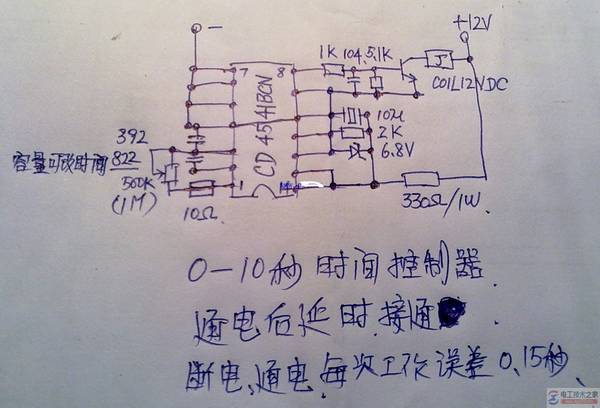 —
+12V
1K 104 5.1K
J
COIL12VDC
7 8
CD 4541BCN
1 14
392
容量可改时间 822
500K
(1M)
10Ω
10u
2K
6.8V
330Ω/1W
0—10秒时间控制器.
通电后延时.接通
断电、通电.每次工作误差0.15秒、
电工技术之家